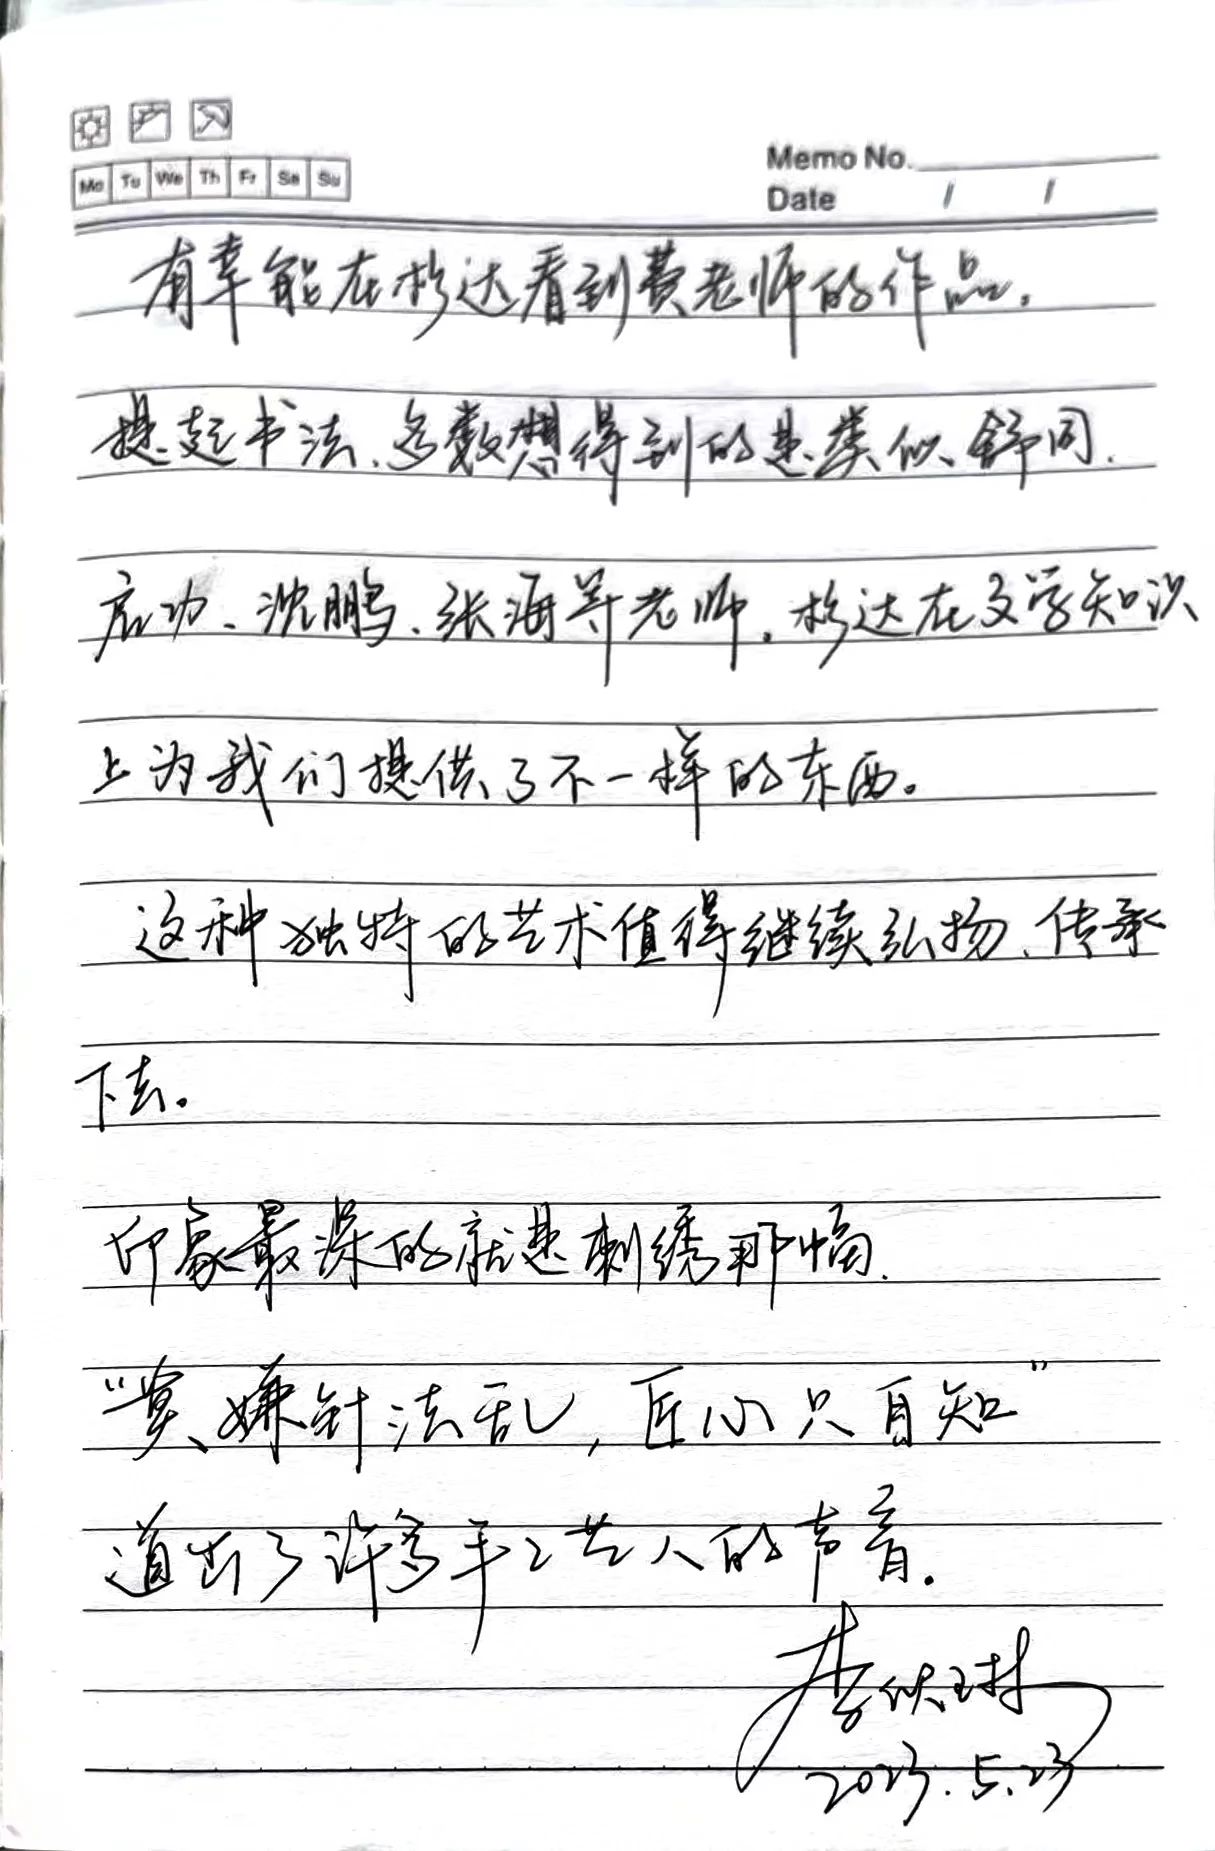 Mo Tu We Th Fr Sa Su
Memo No.
Date / /
有幸能在杉达看到费老师的作品.
提起书法、多数想得到的是类似舒同.
启功、沈鹏、张海等老师.杉达在文学知识
上为我们提供了不一样的东西。
这种独特的艺术值得继续弘扬、传承
下去。
印象最深的就是刺绣那幅.
“莫嫌针法乱,匠心只自知”
道出了许多手工艺人的声音.
李
2023.5.23